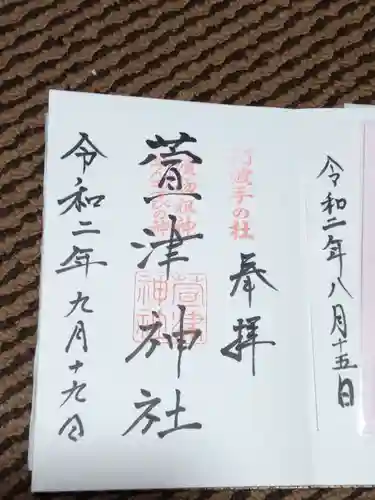 令和二年八月十五日
奉拝
阿波手の杜
萱津神社
萱津神社
令和二年九月十九日